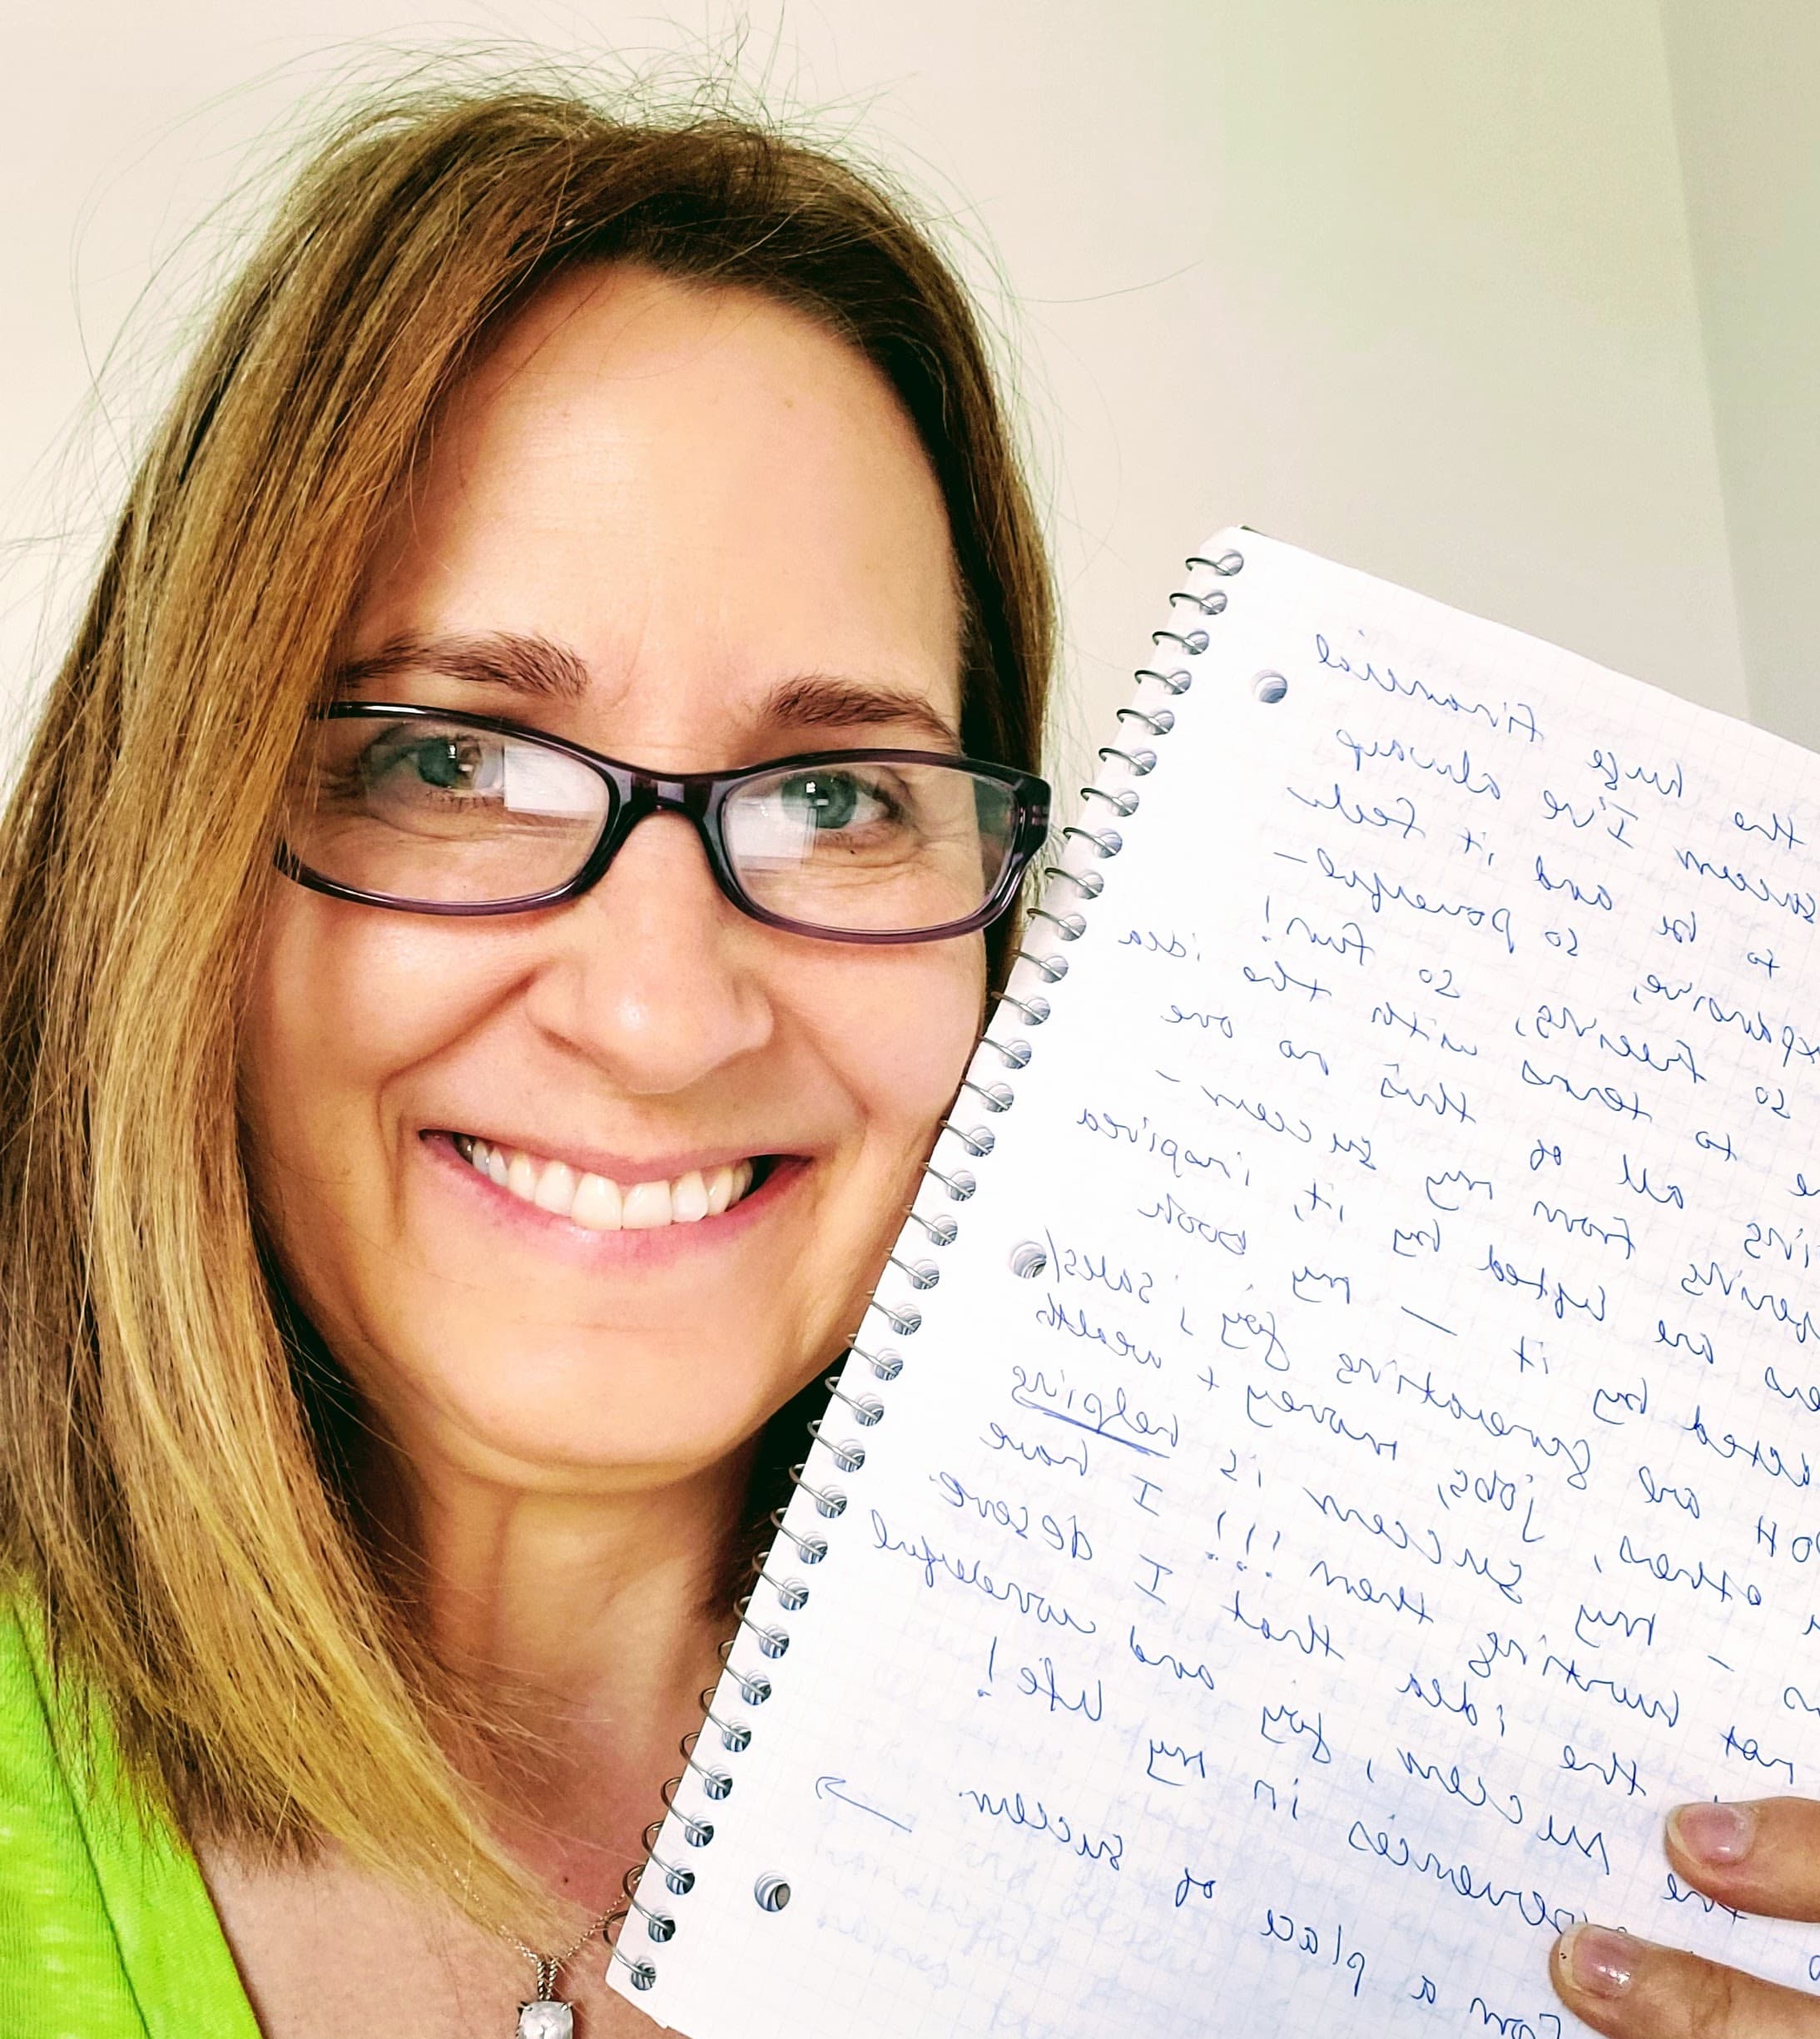 the huge financial
success I've always
to be and it feels
expansive, so powerful -
so freeing, so fun!
to tend with the idea
all of this no one
from my success -
are lifted by it, inspired
by it — my book
are generating joy, sales/
others, jobs, money + wealth
- my success is helping
not hurting them!!! I have
the idea that I deserve
success, joy and wonderful
experiences in my life!
from a place of success. →